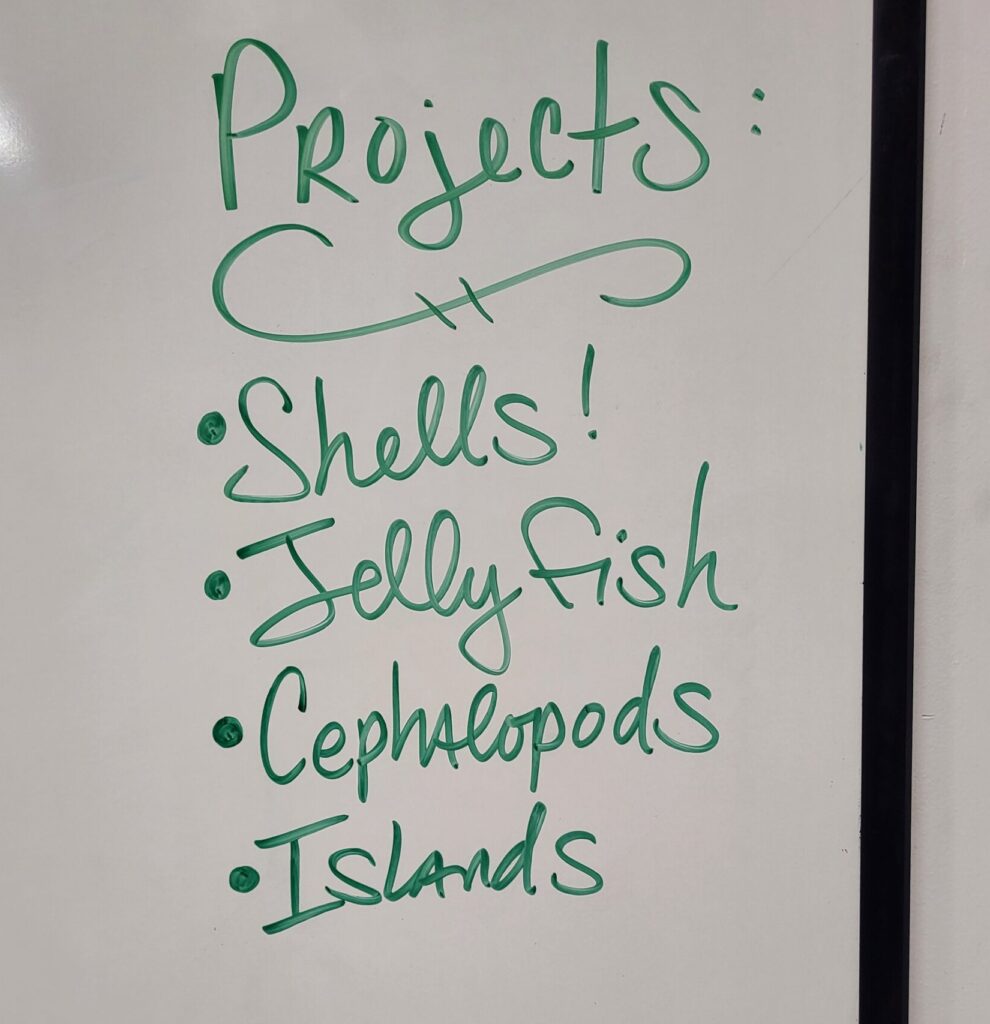 Projects:
• Shells!
• Jelly fish
• Cephalopods
• Islands